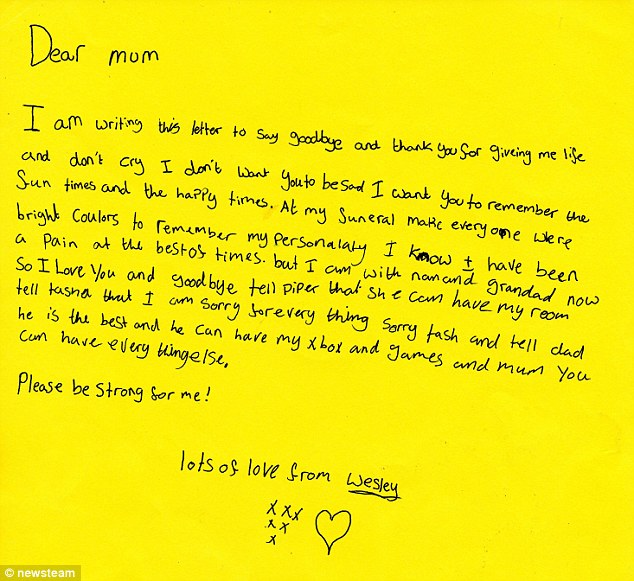 Dear mum
I am writing this letter to say goodbye and thank you for giveing me life
and don't cry I don't want you to be sad I want you to remember the
fun times and the happy times. At my funeral make every one were
bright coulors to remember my personalaty I know I have been
a pain at the best of times. but I am with nan and grandad now
So I Love You and goodbye tell piper that she can have my room
tell tasha that I am sorry for every thing sorry tash and tell dad
he is the best and he can have my xbox and games and mum you
can have every thing else.
Please be strong for me!
lots of love from Wesley
x x x
x x
x
© newsteam